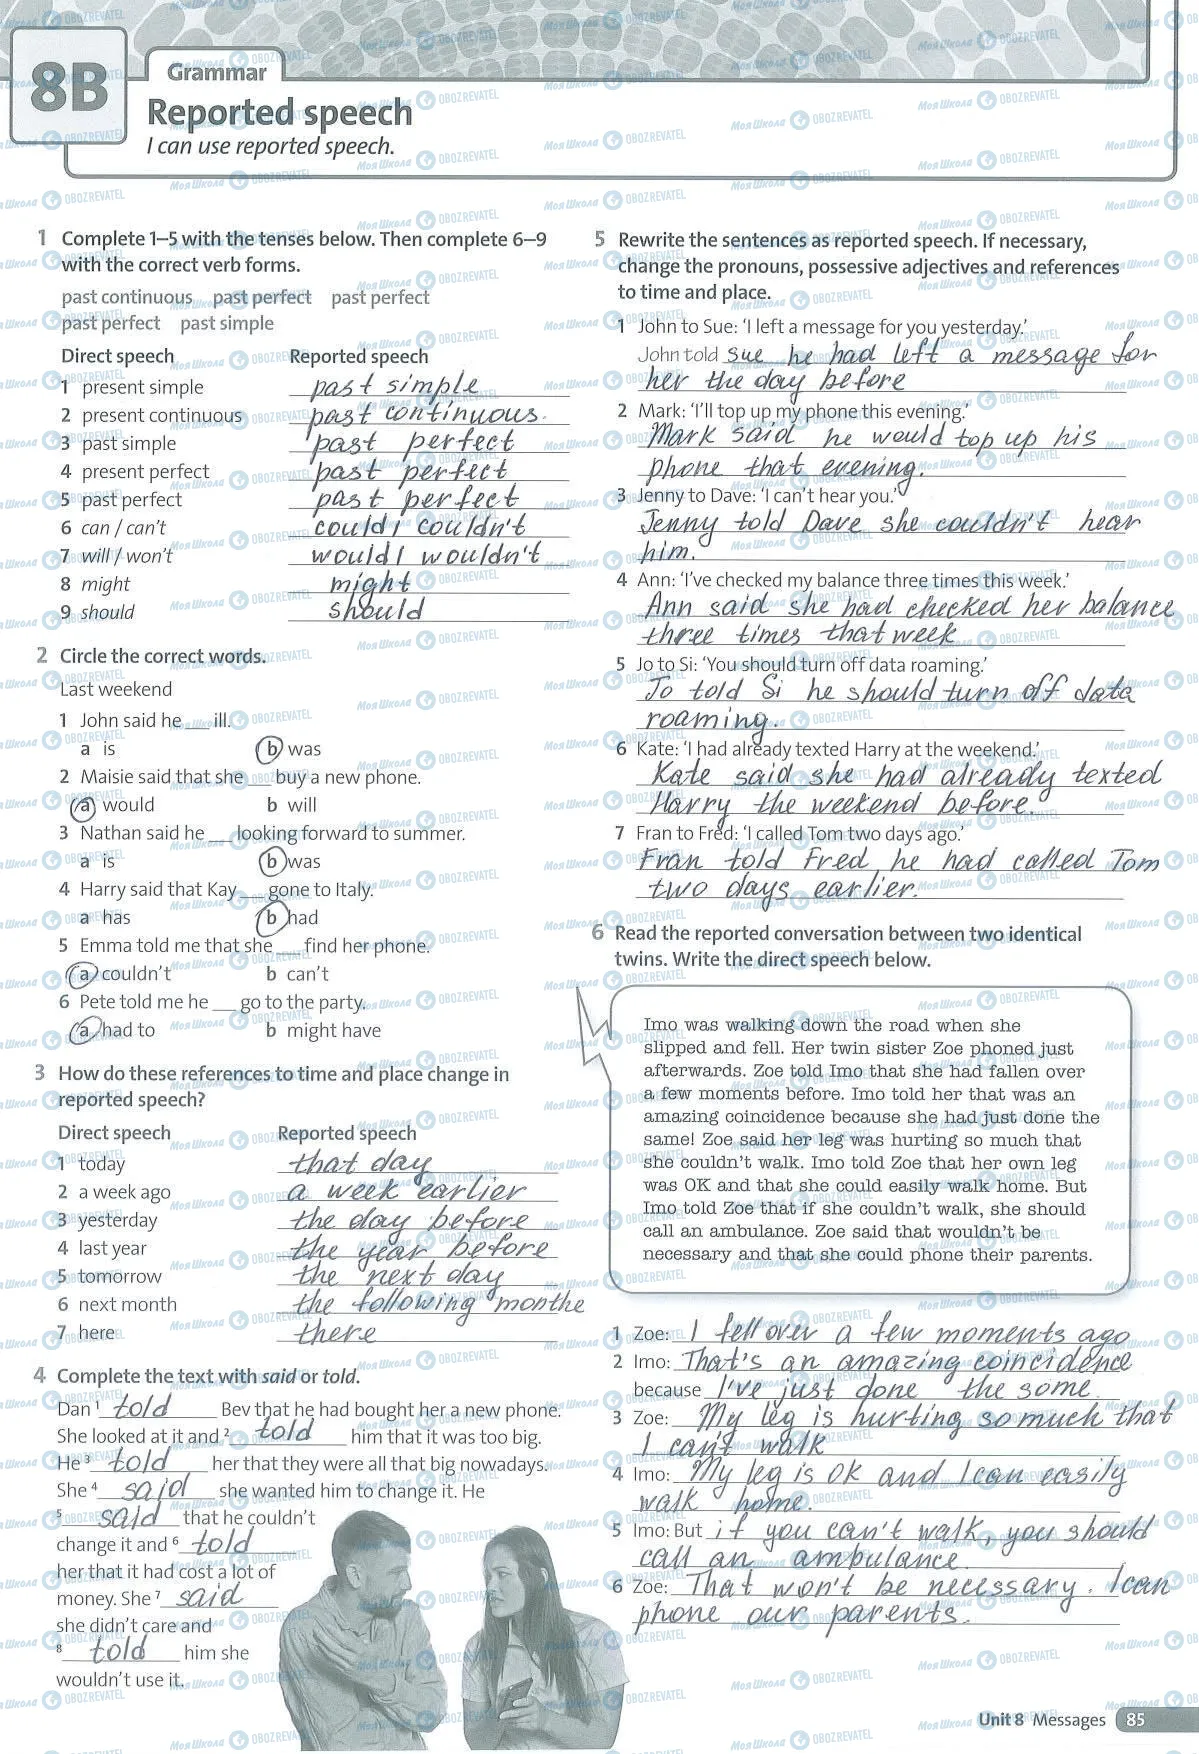 8B
Grammar
Reported speech
I can use reported speech.
1 Complete 1–5 with the tenses below. Then complete 6–9
with the correct verb forms.
past continuous past perfect past perfect
past perfect past simple
Direct speech Reported speech
1 present simple past simple
2 present continuous past continuous.
3 past simple past perfect
4 present perfect past perfect
5 past perfect past perfect
6 can / can't could / couldn't
7 will / won't would / wouldn't
8 might might
9 should should
2 Circle the correct words.
Last weekend
1 John said he __ ill.
a is b was
2 Maisie said that she __ buy a new phone.
a would b will
3 Nathan said he __ looking forward to summer.
a is b was
4 Harry said that Kay __ gone to Italy.
a has b had
5 Emma told me that she __ find her phone.
a couldn't b can't
6 Pete told me he __ go to the party.
a had to b might have
3 How do these references to time and place change in
reported speech?
Direct speech Reported speech
1 today that day
2 a week ago a week earlier
3 yesterday the day before
4 last year the year before
5 tomorrow the next day
6 next month the following monthe
7 here there
4 Complete the text with said or told.
Dan 1 told Bev that he had bought her a new phone.
She looked at it and 2 told him that it was too big.
He 3 told her that they were all that big nowadays.
She 4 said she wanted him to change it. He
5 said that he couldn't
change it and 6 told
her that it had cost a lot of
money. She 7 said
she didn't care and
8 told him she
wouldn't use it.
5 Rewrite the sentences as reported speech. If necessary,
change the pronouns, possessive adjectives and references
to time and place.
1 John to Sue: 'I left a message for you yesterday.'
John told sue he had left a message for
her the day before
2 Mark: 'I'll top up my phone this evening.'
Mark said he would top up his
phone that evening.
3 Jenny to Dave: 'I can't hear you.'
Jenny told Dave she couldn't hear
him.
4 Ann: 'I've checked my balance three times this week.'
Ann said she had checked her balance
three times that week
5 Jo to Si: 'You should turn off data roaming.'
Jo told Si he should turn off data
roaming.
6 Kate: 'I had already texted Harry at the weekend.'
Kate said she had already texted
Harry the weekend before.
7 Fran to Fred: 'I called Tom two days ago.'
Fran told Fred he had called Tom
two days earlier.
6 Read the reported conversation between two identical
twins. Write the direct speech below.
Imo was walking down the road when she
slipped and fell. Her twin sister Zoe phoned just
afterwards. Zoe told Imo that she had fallen over
a few moments before. Imo told her that was an
amazing coincidence because she had just done the
same! Zoe said her leg was hurting so much that
she couldn't walk. Imo told Zoe that her own leg
was OK and that she could easily walk home. But
Imo told Zoe that if she couldn't walk, she should
call an ambulance. Zoe said that wouldn't be
necessary and that she could phone their parents.
1 Zoe: I fell over a few moments ago
2 Imo: That's an amazing coincidence
because I've just done the some.
3 Zoe: My leg is hurting so much that
I can't walk
4 Imo: My leg is OK and I can easily
walk home.
5 Imo: But if you can't walk, you should
call an ambulance.
6 Zoe: That won't be necessary. I can
phone our parents.
Unit 8 Messages 85
Моя Школа OBOZREVATEL